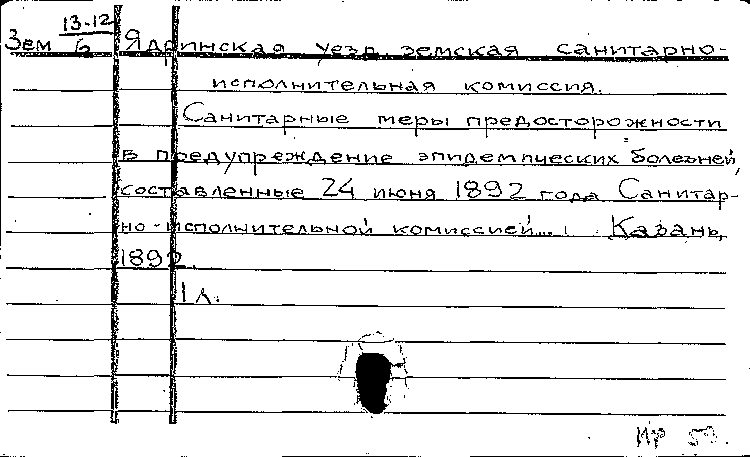 Зем 13-12/6 Ядринская уезд. земская санитарно-
исполнительная комиссия.
Санитарные меры предосторожности
в предупреждение эпидемических болезней,
составленные 24 июня 1892 года Санитар-
но-исполнительной комиссией... Казань,
1892.
1 л.